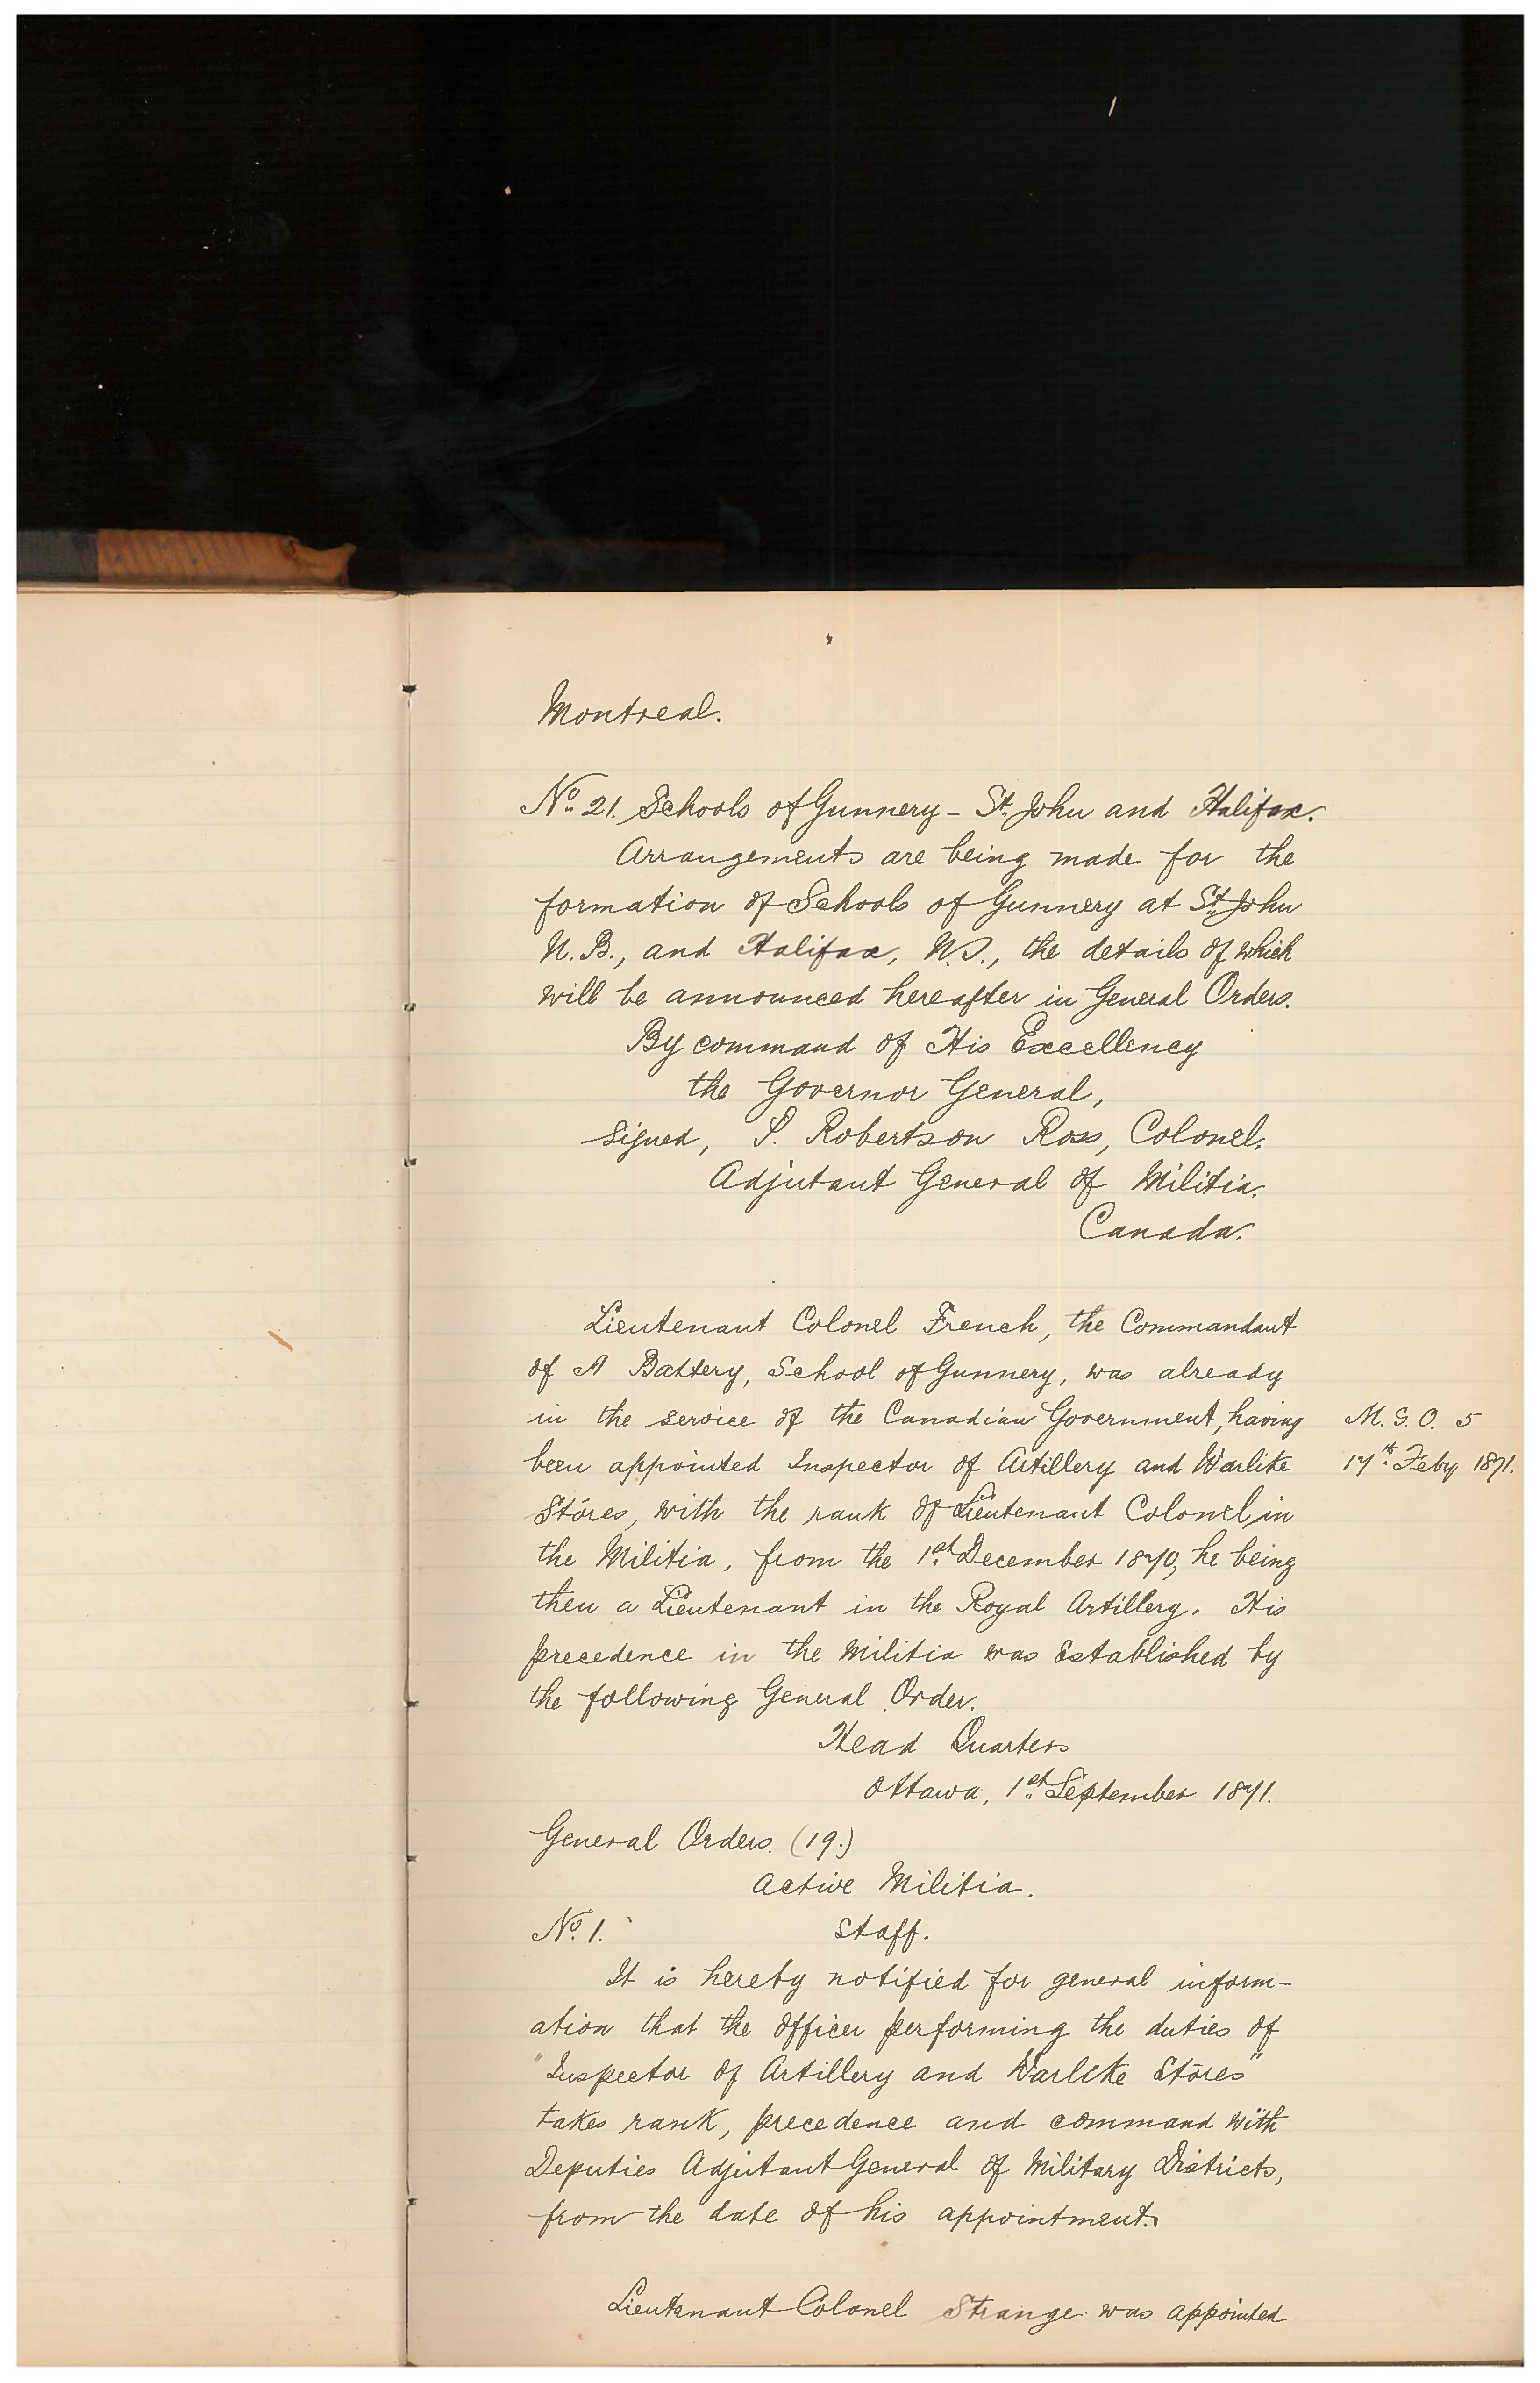 Montreal.
No. 21. Schools of Gunnery - St. John and Halifax.
Arrangements are being made for the
formation of Schools of Gunnery at St. John
N.B., and Halifax, N.S., the details of which
will be announced hereafter in General Orders.
By command of His Excellency
the Governor General,
signed, P. Robertson Ross, Colonel,
Adjutant General of Militia.
Canada.
Lieutenant Colonel French, the Commandant
of A Battery, School of Gunnery, was already
in the service of the Canadian Government, having M. G. O. 5
been appointed Inspector of Artillery and Warlike 17th Feby 1871.
Stores, with the rank of Lieutenant Colonel, in
the Militia, from the 1st December 1870, he being
then a Lieutenant in the Royal Artillery. His
precedence in the Militia was established by
the following General Order.
Head Quarters
Ottawa, 1st September 1871.
General Orders. (19.)
Active Militia.
No. 1. Staff.
It is hereby notified for general inform-
ation that the officer performing the duties of
"Inspector of Artillery and Warlike Stores"
takes rank, precedence and command with
Deputies Adjutant General of Military Districts,
from the date of his appointment.
Lieutenant Colonel Strange was appointed